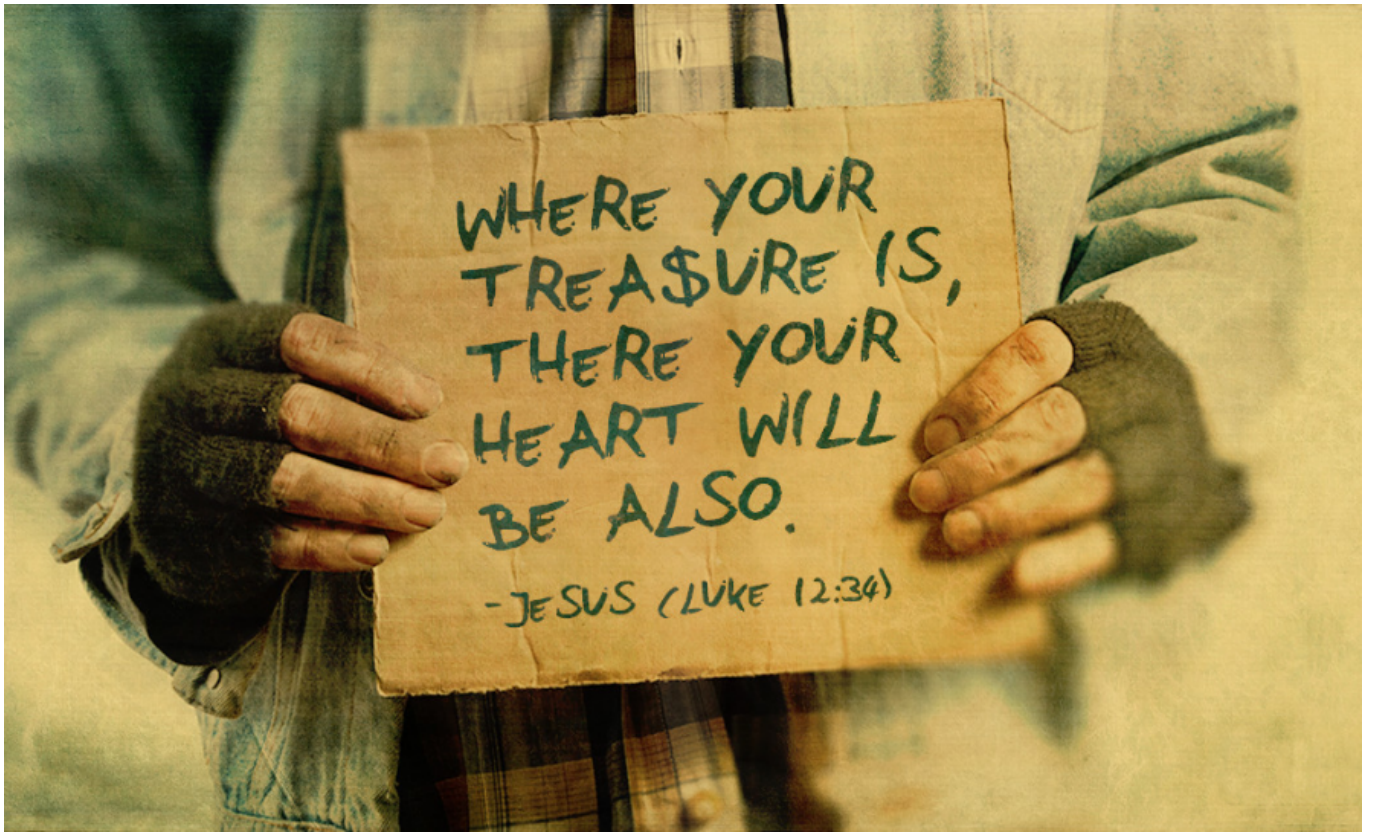 WHERE YOUR
TREA$URE IS,
THERE YOUR
HEART WILL
BE ALSO.
-JESUS (LUKE 12:34)